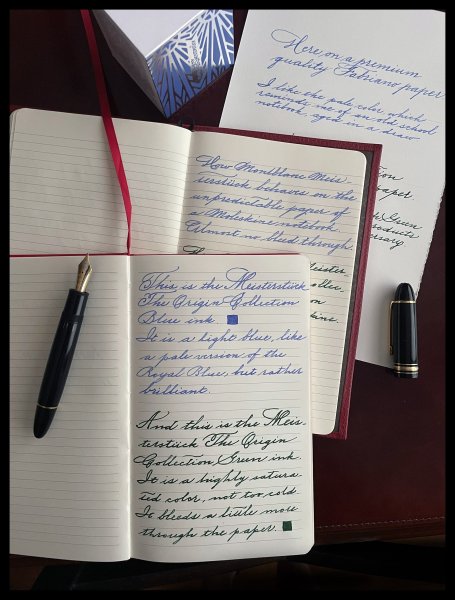 Here on a premium
quality Fabriano paper
I like the pale color which
reminds me of an old school
notebook, aged in a draw
How Montblanc Meis-
terstück behaves on the
unpredictable paper of
a Moleskine notebook.
Almost no bleed through.
This is the Meisterstück
The Origin Collection
Blue ink.
It is a light blue, like
a pale version of the
Royal Blue, but rather
brilliant.
And this is the Meis-
terstück The Origin
Collection Green ink.
It is a highly satura-
ted color, not too cold.
It bleeds a little more
through the paper.